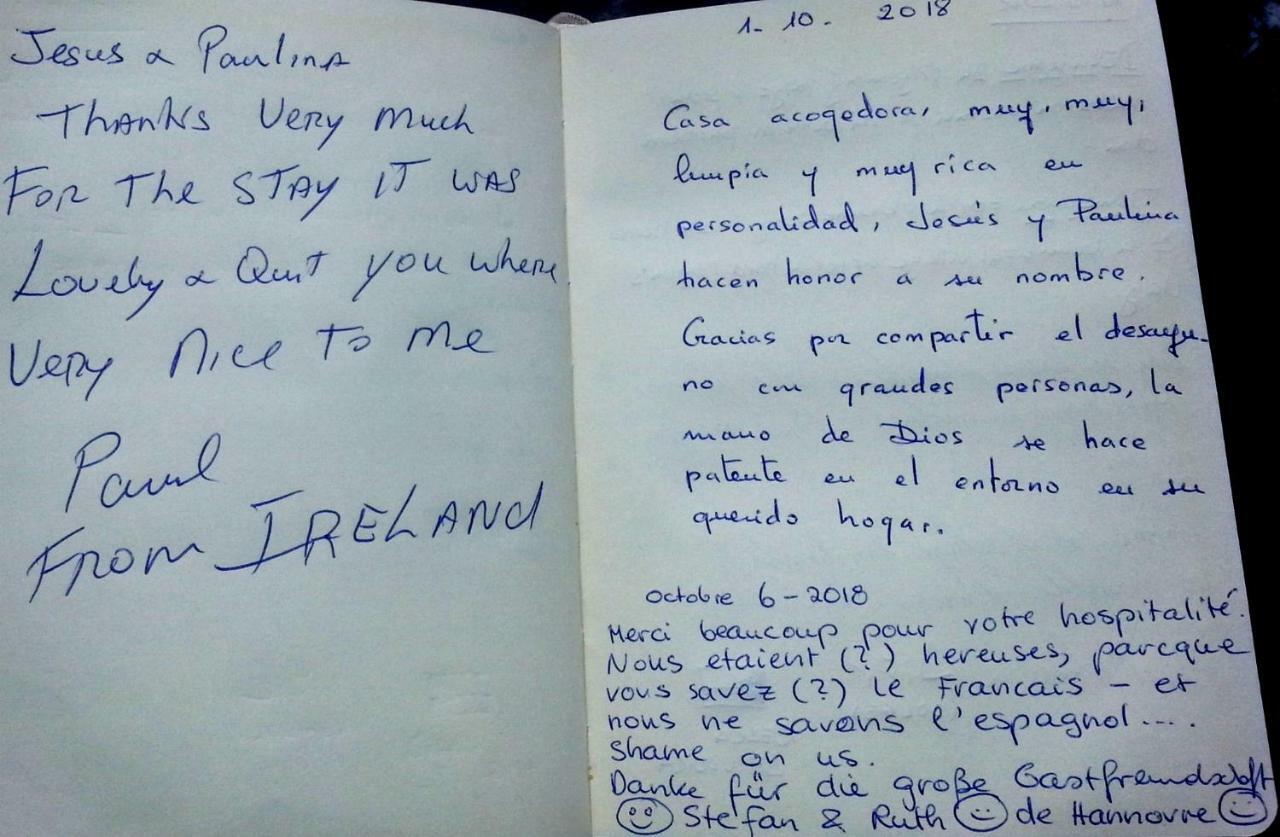 Jesus & Paulina
Thanks Very Much
For The STAY IT WAS
Lovely & Quit you where
Very Nice To Me
Paul
From IRELAND
1-10-2018
Casa acogedora, muy, muy,
limpia y muy rica en
personalidad, Jesús y Paulina
hacen honor a su nombre.
Gracias por compartir el desayu-
no con grandes personas, la
mano de Dios se hace
patente en el entorno en su
querido hogar.
octobre 6-2018
Merci beaucoup pour votre hospitalité.
Nous etaient (?) hereuses, parcque
vous savez (?) le Francais - et
nous ne savons l'espagnol....
Shame on us.
Danke für die große Gastfreundschaft
Stefan & Ruth de Hannovre